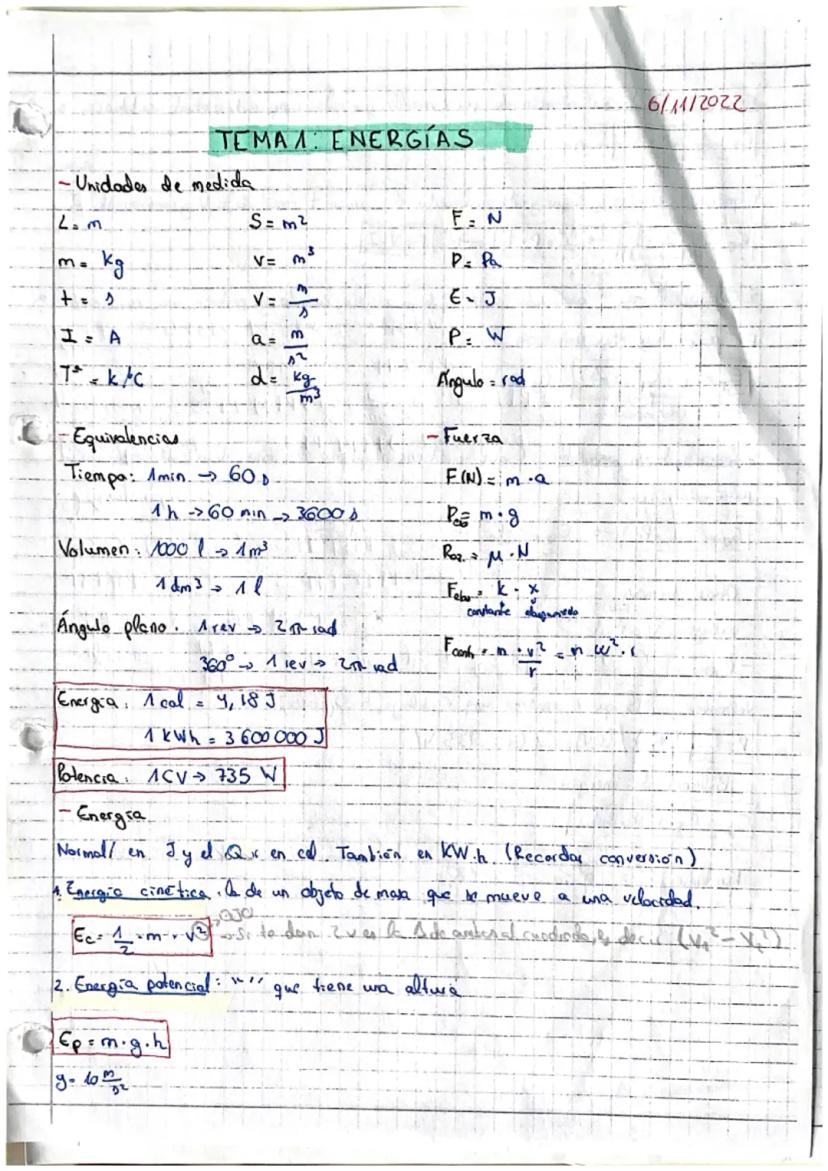 6/11/2022
TEMA 1: ENERGÍAS
- Unidades de medida
L = m    S = m²    F = N
m = kg    V = m³    P = Pa
t = s    v = m/s    E = J
I = A    a = m/s²    P = W
Tª = k/ºC    d = kg/m³    Ángulo = rad
- Equivalencias
Tiempo: 1 min → 60 s
1 h → 60 min → 3600 s
Volumen: 1000 l → 1 m³
1 dm³ → 1 l
Ángulo plano. 1 rev → 2π rad
360° → 1 rev → 2π rad
Energía: 1 cal = 4,18 J
1 kWh = 3 600 000 J
Potencia: 1 CV → 735 W
- Fuerza
F (N) = m · a
m · g
Roz. = μ · N
k · x
constante
m · v²/r = m · w² · r
- Energía
Normal/ en J y el Q en cal. También en KW.h (Recordar conversión)
1. Energía cinética: la de un objeto de masa que se mueve a una velocidad.
Ec = 1/2 · m · v² → OJO
Si te dan 2 v es la Δ de ambos al cuadrado, es decir
2. Energía potencial: " " que tiene una altura
Ep = m · g · h
g = 10 m/s²